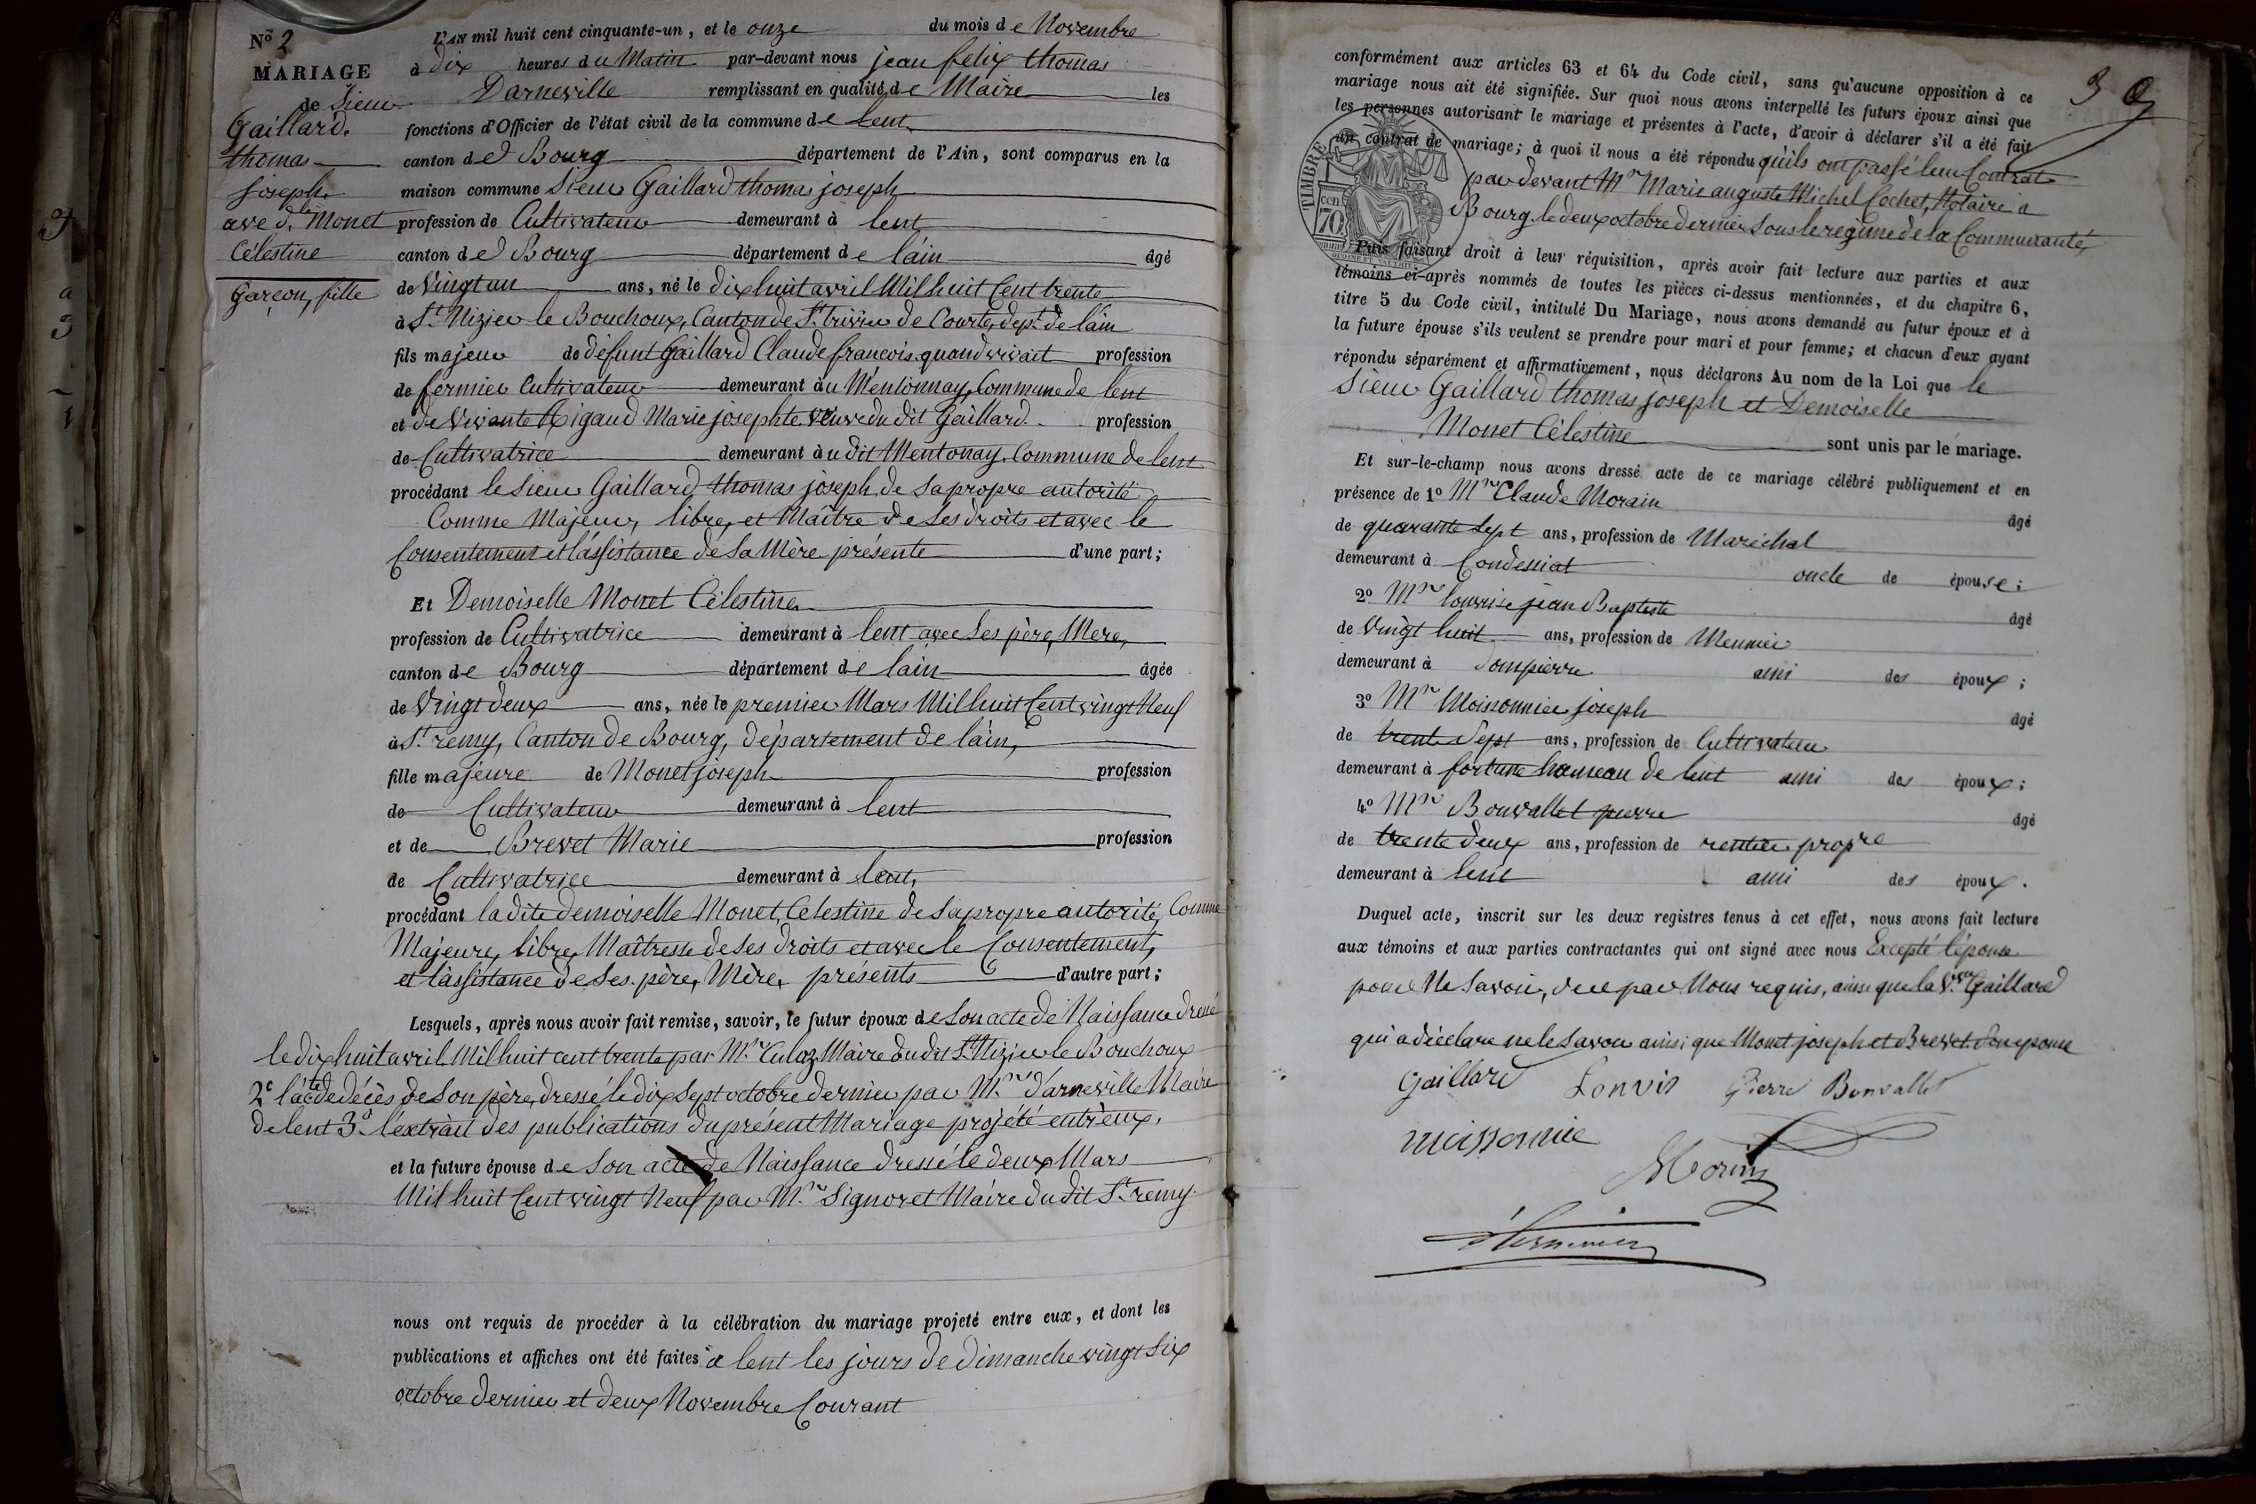 No 2
MARIAGE
de Sieur
Gaillard
thomas
joseph
avec d.lle Monet
Célestine
Garçon, fille
L'AN mil huit cent cinquante-un, et le onze du mois de Novembre
à dix heures du Matin par-devant nous jean felix thomas
Darneville remplissant en qualité de Maire les
fonctions d'Officier de l'état civil de la commune de lent
canton de Bourg département de l'Ain, sont comparus en la
maison commune Sieur Gaillard thomas joseph
profession de Cultivateur demeurant à lent
canton de Bourg département de l'ain âgé
de Vingt un ans, né le dix huit avril Mil huit Cent trente
à St Nizier le Bouchoux, Canton de St trivier de Courte, dept de l'ain
fils majeur de défunt Gaillard Claude françois quand vivait profession
de fermier Cultivateur demeurant à u Mentonnay, Commune de lent
et de Vivante Rigaud Marie josephte veuve du dit Gaillard profession
de Cultivatrice demeurant à u dit Mentonay Commune de lent
procédant le Sieur Gaillard thomas joseph de sa propre autorité
Comme Majeur, libre, et Maître de Ses droits et avec le
Consentement et l'assistance de Sa Mère présente d'une part;
Et Demoiselle Monet Célestine
profession de Cultivatrice demeurant à lent avec Ses père, Mere,
canton de Bourg département de l'ain âgée
de Vingt deux ans, née le premier Mars Mil huit Cent vingt Neuf
à St remy, Canton de Bourg, département de l'ain,
fille majeure de Monet joseph profession
de Cultivateur demeurant à lent
et de Brevet Marie profession
de Cultivatrice demeurant à lent,
procédant la dite demoiselle Monet, Célestine de Sa propre autorité, Comme
Majeure, libre, Maîtresse de Ses droits et avec le Consentement,
et l'assistance de Ses père, Mère, présents d'autre part;
Lesquels, après nous avoir fait remise, savoir, le futur époux de Son acte de Naissance dressé
le dix huit avril Mil huit cent trente par Mr Culaz Maire du dit St Nizier le Bouchoux
2e l'acte de décès de Son père, dressé le dix Sept octobre dernier par Mr darneville Maire
de lent 3° l'extrait des publications du présent Mariage projété entr'eux,
et la future épouse de Son acte de Naissance dressé le deux Mars
Mil huit Cent vingt Neuf par Mr Signoret Maire du dit St remy
nous ont requis de procéder à la célébration du mariage projeté entre eux, et dont les
publications et affiches ont été faites à lent les jours de dimanche vingt Six
octobre dernier et deux Novembre Courant
conformément aux articles 63 et 64 du Code civil, sans qu'aucune opposition à ce
mariage nous ait été signifiée. Sur quoi nous avons interpellé les futurs époux ainsi que
les personnes autorisant le mariage et présentes à l'acte, d'avoir à déclarer s'il a été fait
un contrat de mariage; à quoi il nous a été répondu qu'ils ont passé leur Contrat
par devant Mr Marie auguste Michel Cochet, Notaire à
Bourg le deux octobre dernier Sous le régime de la Communauté,
TIMBRE
cen.
70
Puis faisant droit à leur réquisition, après avoir fait lecture aux parties et aux
témoins ci-après nommés de toutes les pièces ci-dessus mentionnées, et du chapitre 6,
titre 5 du Code civil, intitulé Du Mariage, nous avons demandé au futur époux et à
la future épouse s'ils veulent se prendre pour mari et pour femme; et chacun d'eux ayant
répondu séparément et affirmativement, nous déclarons Au nom de la Loi que le
Sieur Gaillard thomas joseph et Demoiselle
Monet Célestine sont unis par le mariage.
Et sur-le-champ nous avons dressé acte de ce mariage célébré publiquement et en
présence de 1° Mr Claude Morain âgé
de quarante Sept ans, profession de Maréchal
demeurant à Condessiat oncle de épouse;
2° Mr louvise jean Baptiste âgé
de Vingt huit ans, profession de Meunier
demeurant à dompierre ami des époux;
3° Mr Moissonnier joseph âgé
de trente Sept ans, profession de Cultivateur
demeurant à fortune hameau de lent ami des époux;
4° Mr Bonvallet pierre âgé
de trente deux ans, profession de rentier propre
demeurant à lent ami des époux.
Duquel acte, inscrit sur les deux registres tenus à cet effet, nous avons fait lecture
aux témoins et aux parties contractantes qui ont signé avec nous Excepté l'épouse
pour Ne Savoir, de ce par Nous requis, ainsi que la Vve Gaillard
qui a déclaré ne le Savoir ainsi que Monet joseph et Brevet Son epouse
Gaillard Lonvis Pierre Bonvallet
moissonnie
Morin